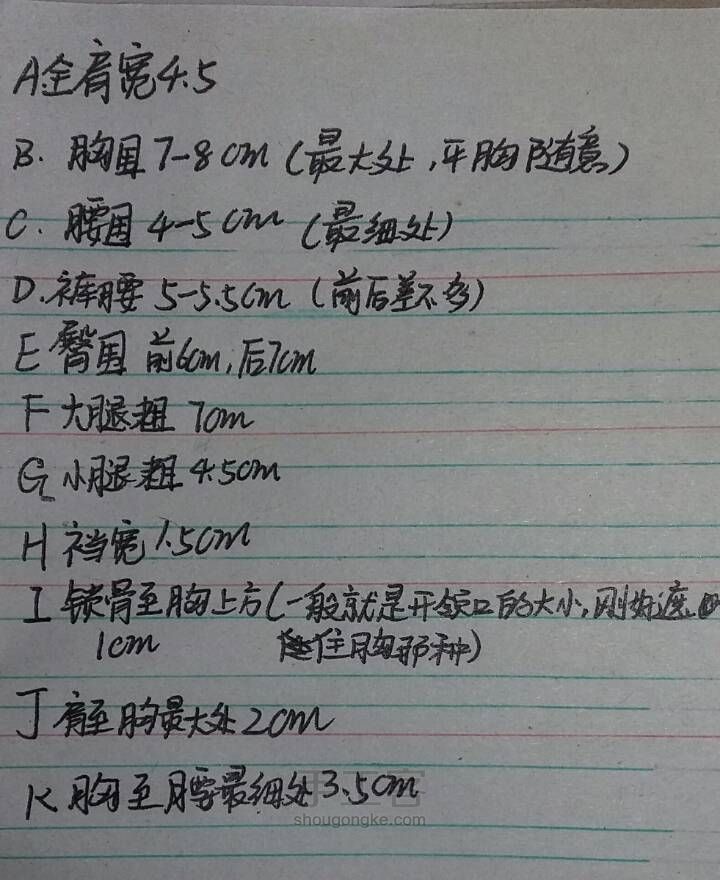 A全肩宽4.5
B. 胸围 7-8cm (最大处,平胸随意)
C. 腰围 4-5cm (最细处)
D.裤腰 5-5.5cm (前后差不多)
E 臀围 前6cm,后7cm
F 大腿粗 7cm
G 小腿粗 4.5cm
H 裆宽 1.5cm
I 锁骨至胸上方(一般就是开领口的大小,刚好遮
1cm 住胸那种)
J 肩至胸最大处2cm
K 胸至腰最细处3.5cm
手工客
shougongke.com